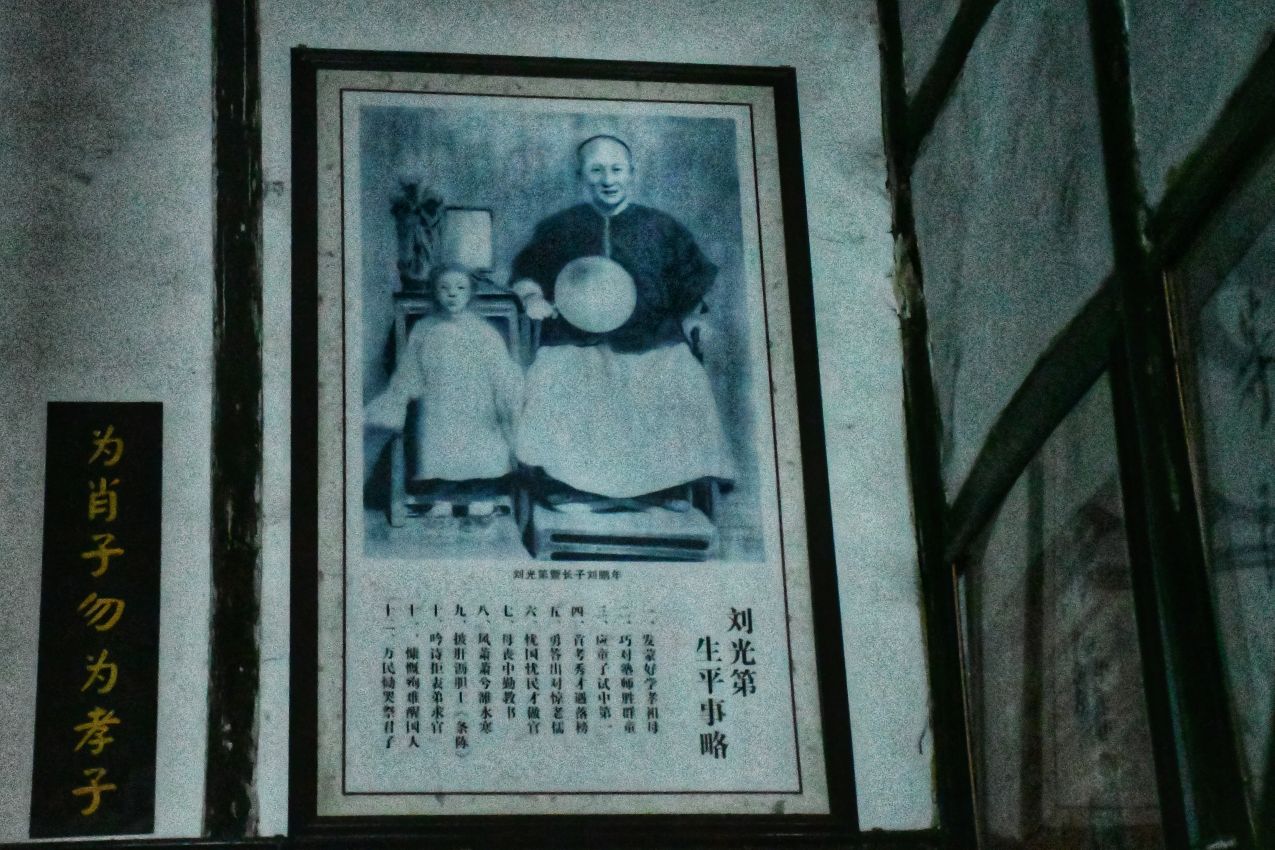 为肖子勿为孝子
刘光第暨长子刘鹏年
刘光第
生平事略
一、发蒙好学孝祖母
二、巧对塾师胜群童
三、应童子试中第一
四、首考秀才遇落榜
五、勇答出对惊老儒
六、忧国忧民才做官
七、母丧中勤教书
八、风萧萧兮濉水寒
九、披肝沥胆上《条陈》
十、吟诗拒表弟求官
十一、慷慨殉难醒国人
十二、万民恸哭祭君子